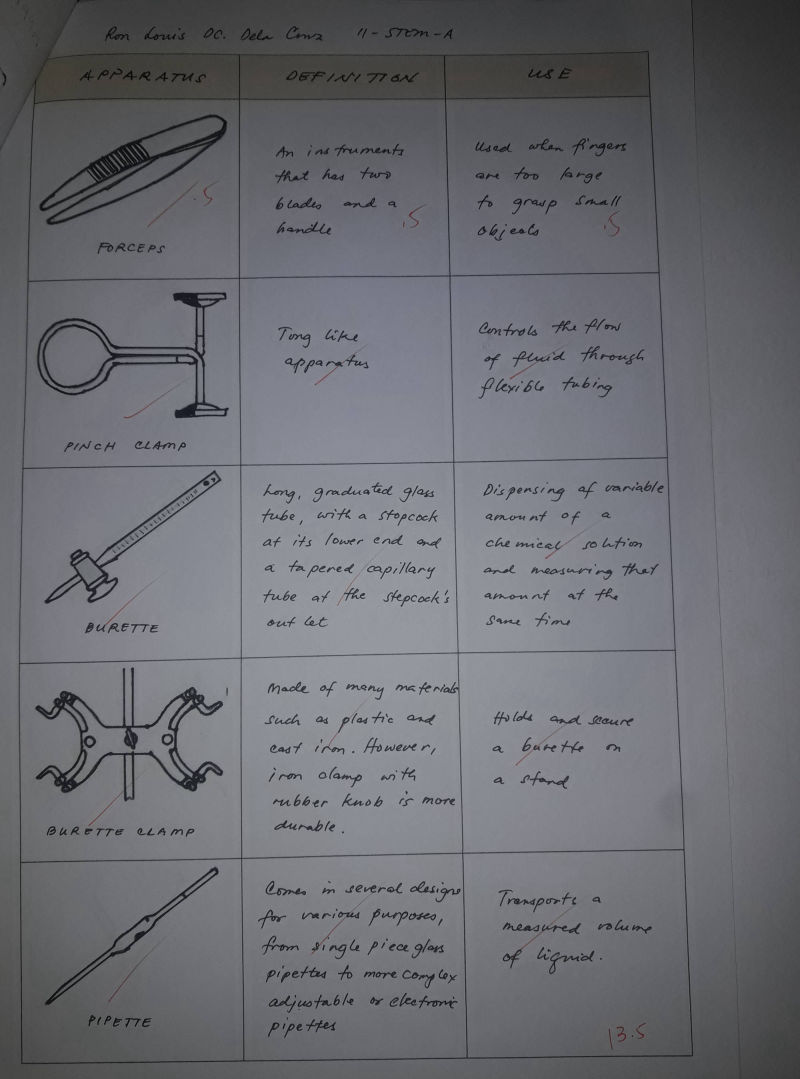 Ron Louis DC. Dela Cruz 11-STEM-A
APPARATUS
DEFINITION
USE
FORCEPS
.5
An instruments
that has two
blades and a
handle
.5
Used when fingers
are too large
to grasp small
objects
.5
PINCH CLAMP
Tong like
apparatus
Controls the flow
of fluid through
flexible tubing
BURETTE
Long, graduated glass
tube, with a stopcock
at its lower end and
a tapered capillary
tube at the stepcock's
out let
Dispensing of variable
amount of a
chemical solution
and measuring that
amount at the
same time
BURETTE CLAMP
Made of many materials
such as plastic and
cast iron. However,
iron clamp with
rubber knob is more
durable.
Holds and secure
a burette on
a stand
PIPETTE
Comes in several designs
for various purposes,
from single piece glass
pipettes to more complex
adjustable or electronic
pipettes
Transports a
measured volume
of liquid.
13.5